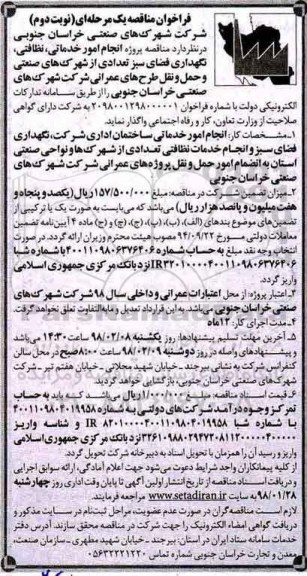 فراخوان مناقصه یک مرحله‌ای (نوبت دوم)
شرکت شهرک‌های صنعتی خراسان جنوبی
در نظر دارد مناقصه پروژه انجام امور خدماتی، نظافتی،
نگهداری فضای سبز تعدادی از شهرک‌های صنعتی
و حمل و نقل طرح‌های عمرانی شرکت شهرک‌های
صنعتی خراسان جنوبی را از طریق سامانه تدارکات
الکترونیکی دولت با شماره فراخوان ۲۰۹۸۰۰۱۲۹۸۰۰۰۰۰۱ به شرکت دارای گواهی
صلاحیت از وزارت تعاون، کار و رفاه اجتماعی واگذار نماید.
۱- مشخصات کار: انجام امور خدماتی ساختمان اداری شرکت، نگهداری
فضای سبز و انجام خدمات نظافتی تعدادی از شهرک‌ها و نواحی صنعتی
استان به انضمام امور حمل و نقل پروژه‌های عمرانی شرکت شهرک‌های
صنعتی خراسان جنوبی
۲- میزان تضمین شرکت در مناقصه: مبلغ ۱۵۷/۵۰۰/۰۰۰ ریال (یکصد و پنجاه و
هفت میلیون و پانصد هزار ریال) می‌باشد که می‌بایست به صورت یک یا ترکیبی از
تضمین‌های موضوع بندهای (الف)، (ب)، (پ)، (ج)، (چ) و (ح) ماده ۴ آیین‌نامه تضمین
معاملات دولتی مورخ ۹۴/۰۹/۲۲ مصوب هیئت محترم وزیران ارائه گردد. در صورت
انتخاب وجه نقد مبلغ به حساب شماره
نزد بانک مرکزی جمهوری اسلامی
واریز گردد.
۳- اعتبار پروژه: از محل اعتبارات عمرانی و داخلی سال ۹۸ شرکت شهرک‌های
صنعتی خراسان جنوبی می‌باشد. به این قرارداد تعدیل و مابه‌التفاوت تعلق نخواهد گرفت.
۴- مدت اجرای کار: ۱۲ ماه
۵- آخرین مهلت تسلیم پیشنهادها: روز یکشنبه ۹۸/۰۲/۰۸ ساعت ۱۴:۳۰ می‌باشد
و پیشنهادهای واصله در روز دوشنبه ۹۸/۰۲/۰۹ ساعت ۸:۰۰ صبح در محل سالن
کنفرانس شرکت به نشانی بیرجند، خیابان شهید محلاتی، خیابان هفتم تیر - شرکت
شهرک‌های صنعتی خراسان جنوبی، بازگشایی خواهد گردید.
۶- قیمت اسناد مناقصه: ریال می‌باشد که باید به حساب
تمرکز وجوه درآمد شرکت‌های دولتی به شماره
با شماره شبا IR و شناسه واریز
نزد بانک مرکزی جمهوری اسلامی
واریز و رسید آن را همزمان با تحویل اسناد به دبیرخانه شرکت تحویل گردد.
از کلیه پیمانکاران واجد شرایط دعوت می‌شود جهت اعلام آمادگی، ارائه سوابق اجرایی
و دریافت اسناد مناقصه از تاریخ انتشار اولین آگهی تا پایان وقت اداری روز چهارشنبه
۹۸/۰۱/۲۸ به سایت www.setadiran.ir مراجعه فرمایند.
لازم است مناقصه‌گران در صورت عدم عضویت، مراحل ثبت‌نام در سایت مذکور و
دریافت گواهی امضاء الکترونیک را جهت شرکت در مناقصه محقق سازند. آدرس دفتر
خدمات سامانه ستاد ایران در استان: بیرجند - خیابان شهید مطهری - سازمان صنعت،
معدن و تجارت خراسان جنوبی شماره تماس ۰۵۶۳۲۲۲۱۲۲۰